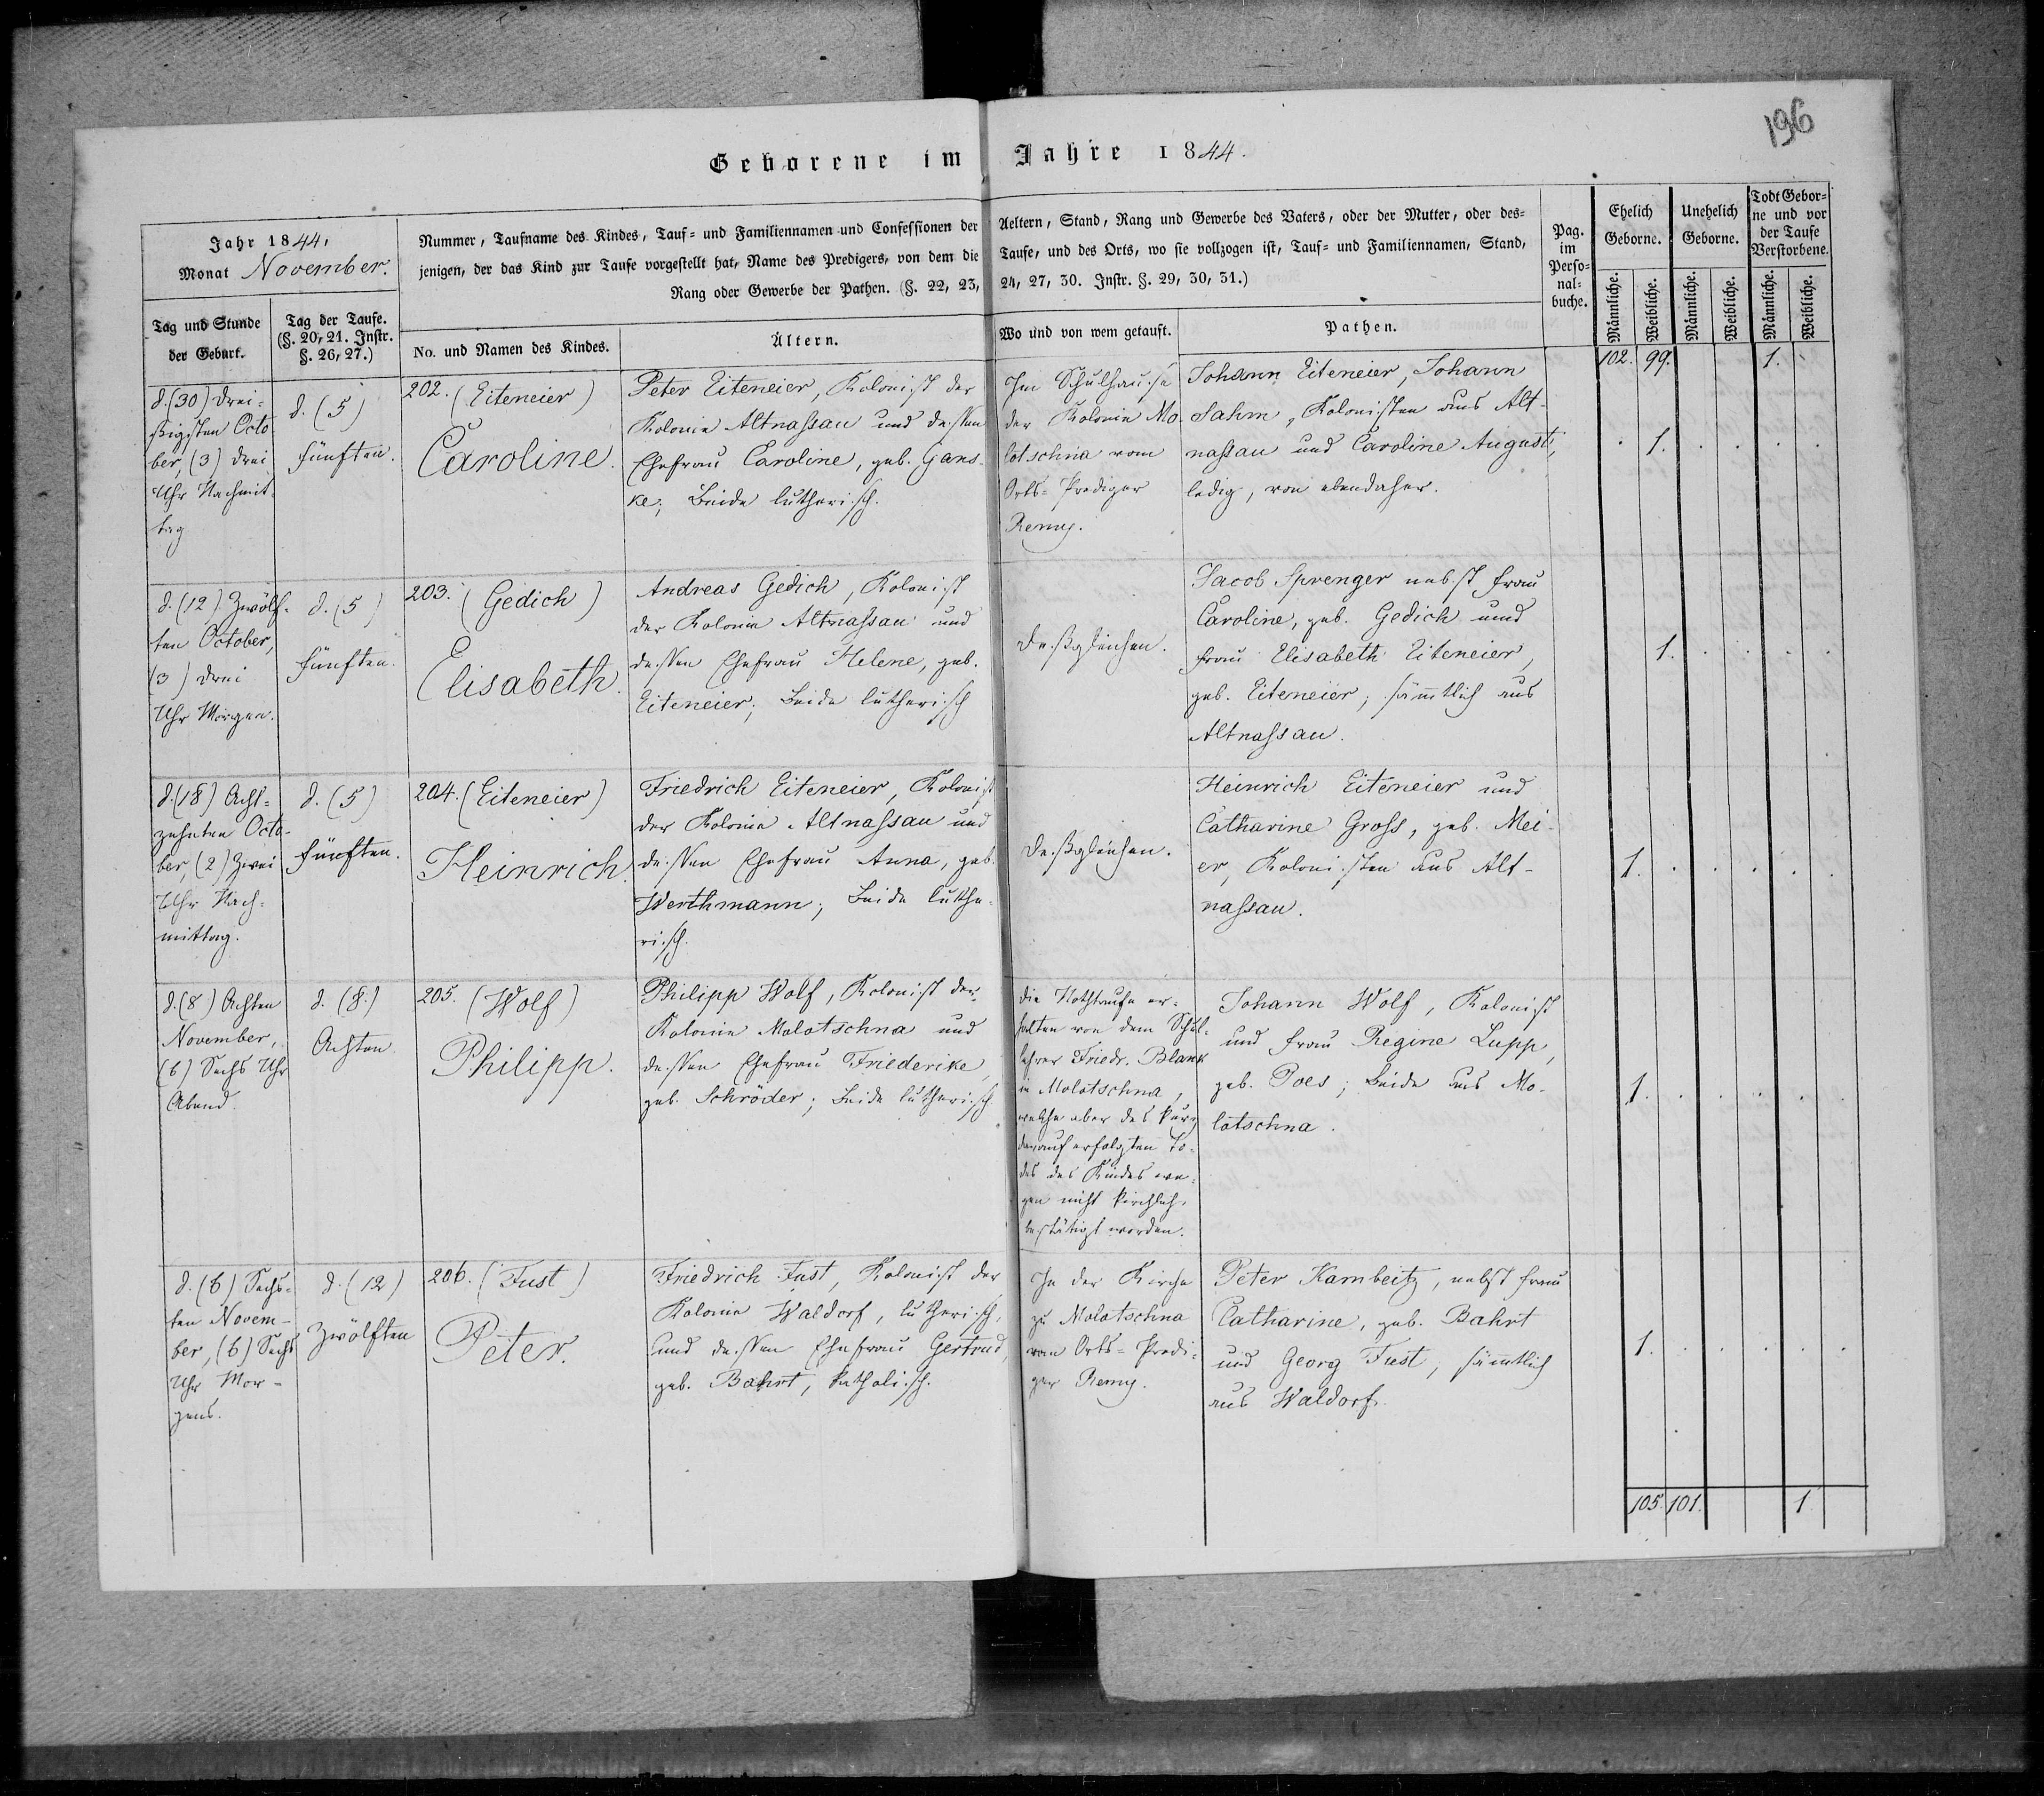 196
Geborene im Jahre 1844.
Jahr 1844,
Monat November.
Nummer, Taufname des Kindes, Tauf- und Familiennamen und Confessionen der Aeltern, Stand, Rang und Gewerbe des Vaters, oder der Mutter, oder des-
jenigen, der das Kind zur Taufe vorgestellt hat, Name des Predigers, von dem die Taufe, und des Orts, wo sie vollzogen ist, Tauf- und Familiennamen, Stand,
Rang oder Gewerbe der Pathen. (§. 22, 23, 24, 27, 30. Instr. §. 29, 30, 31.)
Pag.
im
Perso-
nal-
buche.
Ehelich
Geborne.
Unehelich
Geborne.
Todt Gebor-
ne und vor
der Taufe
Verstorbene.
Tag und Stunde
der Geburt.
Tag der Taufe.
(§. 20, 21. Instr.
§. 26, 27.)
No. und Namen des Kindes.
Ältern.
Wo und von wem getauft.
Pathen.
Männliche.
Weibliche.
Männliche.
Weibliche.
Männliche.
Weibliche.
102. 99. 1.
d. (30) Drei-
ßigsten Octo-
ber, (3) drei
Uhr Nachmit-
tag
d. (5)
fünften.
202. (Eiteneier)
Caroline.
Peter Eiteneier, Kolonist der
Kolonie Altnassau und dessen
Ehefrau Caroline, geb. Gans-
ke; Beide lutherisch.
Im Schulhause
der Kolonie Mo-
lotschna vom
Orts-Prediger
Remy.
Johann Eiteneier, Johann
Sahm, Kolonisten aus Alt-
nassau und Caroline August,
ledig, von ebendaher.
1.
d. (12) Zwölf-
ten October,
(3) drei
Uhr Morgen.
d. (5)
fünften.
203. (Gedich)
Elisabeth.
Andreas Gedich, Kolonist
der Kolonie Altnassau und
dessen Ehefrau Helene, geb.
Eiteneier; Beide lutherisch
Deßgleichen.
Jacob Sprenger nebst Frau
Caroline, geb. Gedich und
Frau Elisabeth Eiteneier,
geb. Eiteneier; sämtlich aus
Altnassau.
1.
d. (18) Acht-
zehnten Octo-
ber, (2) Zwei
Uhr Nach-
mittag.
d. (5)
fünften.
204. (Eiteneier)
Heinrich.
Friedrich Eiteneier, Kolonist
der Kolonie Altnassau und
dessen Ehefrau Anna, geb.
Werthmann; Beide luthe-
risch.
Deßgleichen.
Heinrich Eiteneier und
Catharine Gross, geb. Mei-
er, Kolonisten aus Alt-
nassau.
1.
d. (8) Achten
November,
(6) Sechs Uhr
Abend.
d. (8.)
Achten
205. (Wolf)
Philipp.
Philipp Wolf, Kolonist der
Kolonie Molotschna und
dessen Ehefrau Friederike,
geb. Schröder; Beide lutherisch
Die Nothtaufe er-
halten von dem Schul-
lehrer Friedr. Blank
in Molotschna,
welche aber des kurz
darauf erfolgten To-
des des Kindes we-
gen nicht kirchlich
bestätigt worden.
Johann Wolf, Kolonist
und Frau Regine Lupp,
geb. Poes; Beide aus Mo-
lotschna.
1.
d. (6) Sechs-
ten Novem-
ber, (6) Sechs
Uhr Mor-
gens.
d. (12)
Zwölften
206. (Fust)
Peter.
Friedrich Fust, Kolonist der
Kolonie Waldorf, lutherisch,
und dessen Ehefrau Gertrud,
geb. Bahrt, katholisch.
In der Kirche
zu Molotschna
vom Orts-Predi-
ger Remy.
Peter Kambeitz, nebst Frau
Catharine, geb. Bahrt
und Georg Fust, sämtlich
aus Waldorf.
1.
105. 101. 1